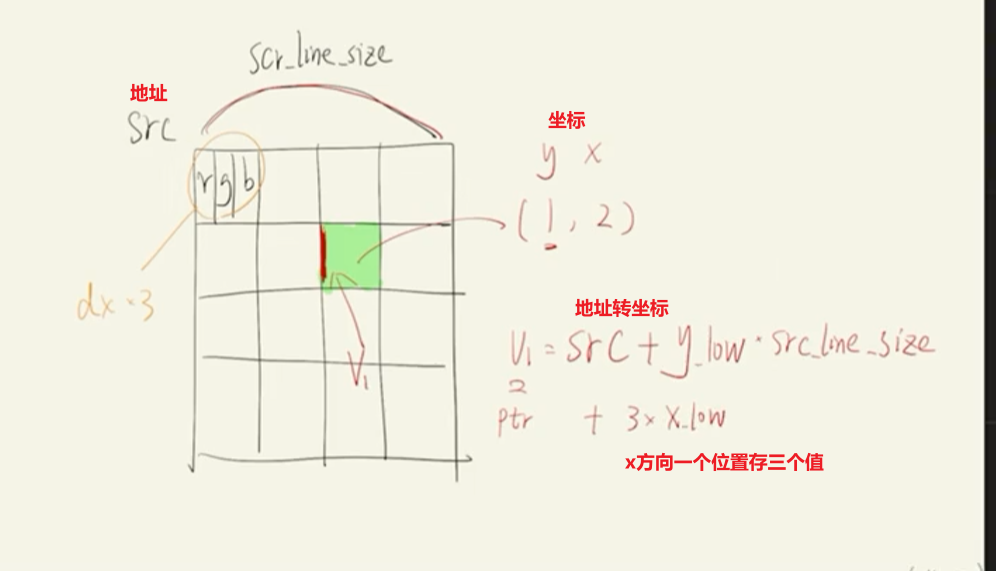 scr_line_size
地址
src
r g b
坐标
y x
(1, 2)
dx×3
地址转坐标
V₁ = src + y_low · src_line_size
V₁
ptr + 3× x_low
x方向一个位置存三个值